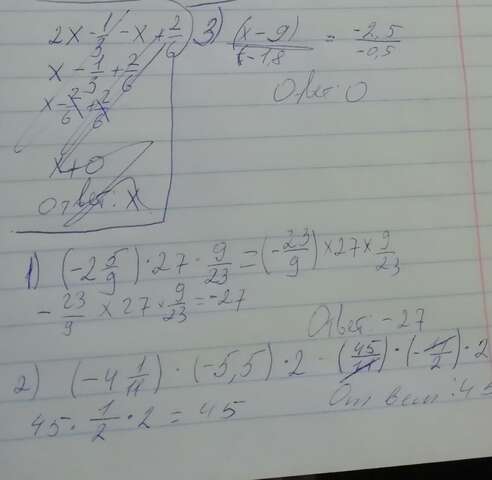 2x - 1/3 - x + 2/6
x - 1/3 + 2/6
x - 2/6 + 2/6
x + 0
Ответ: x
3) (x-9)/(-1,8) = -2,5/-0,5
Ответ: 0
1) (-2 5/9) · 27 · 9/23 = (-23/9) × 27 × 9/23
- 23/9 × 27 × 9/23 = -27
Ответ: -27
2) (-4 1/11) · (-5,5) · 2 - (45/11) · (-11/2) · 2
45 · 1/2 · 2 = 45
Ответ: 45